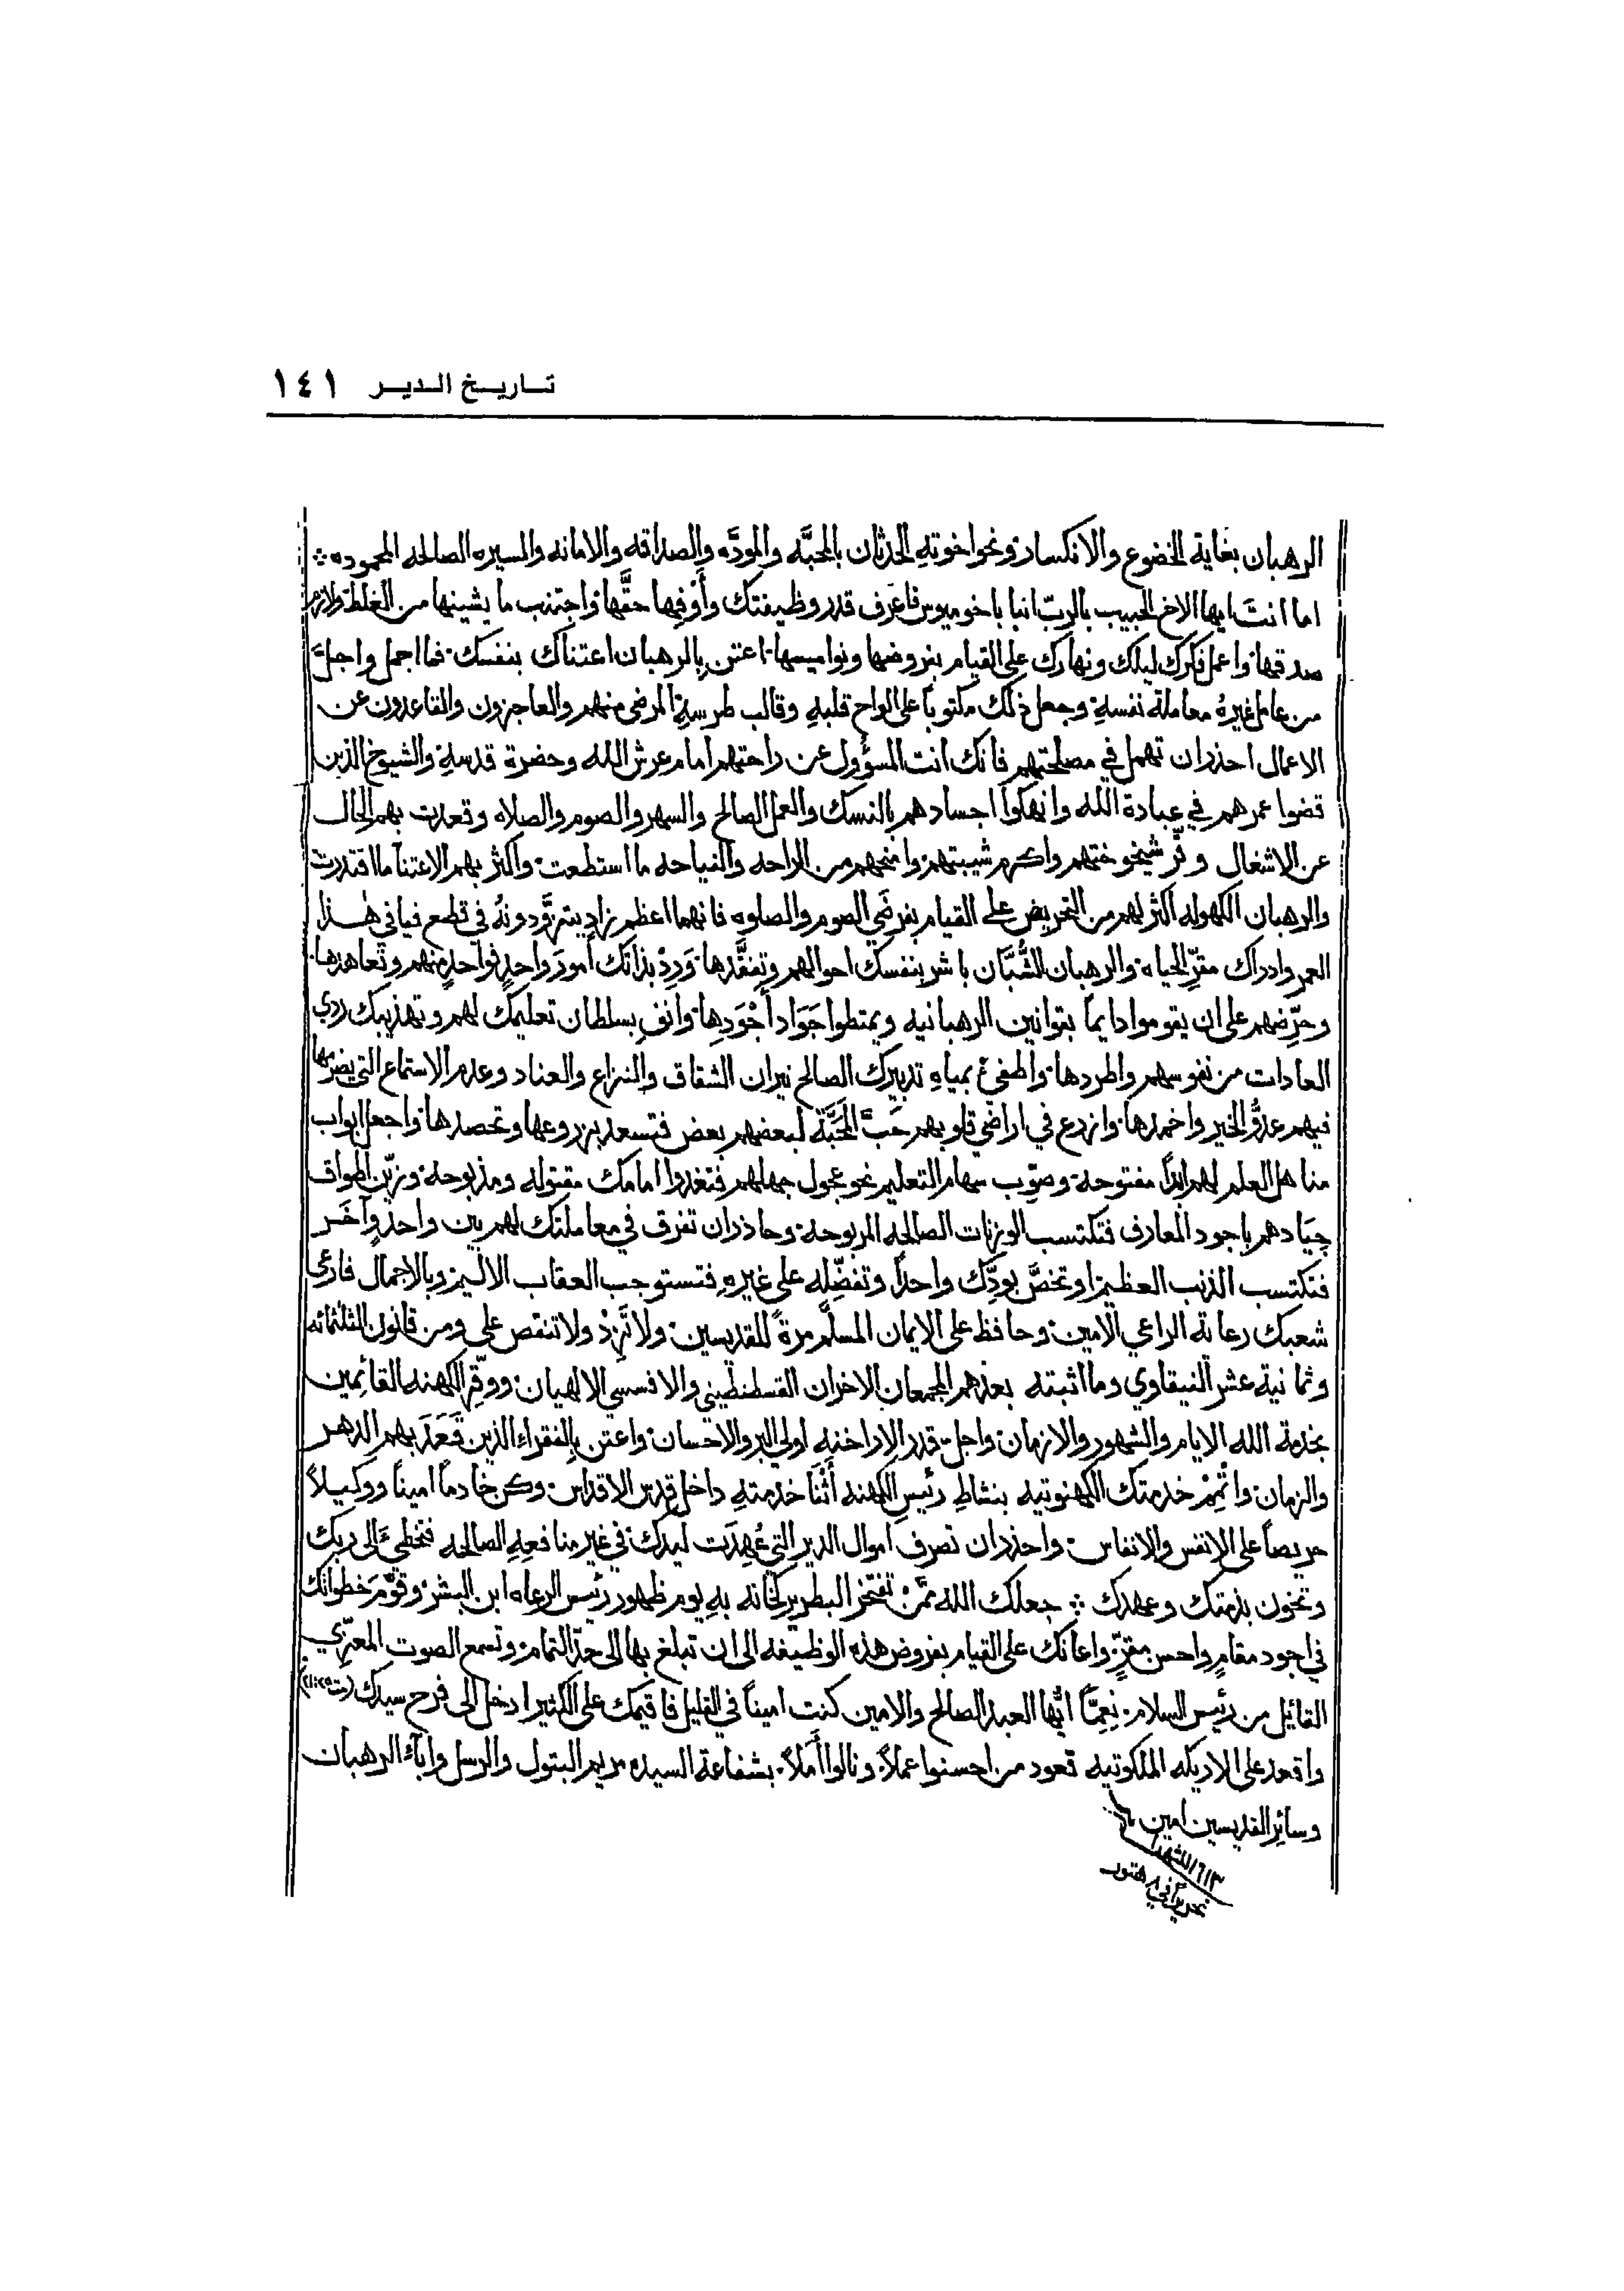 تاريخ الدير ١٤١
الرهبان بغاية الخضوع والانكسار ونحو اخوته الحدثان بالمحبَّه والمودَّه والصداقه والامانه والسيره الصالحه المحموده
اما انتَ ايها الاخ الحبيب بالربّ انبا باخوميوس فاعرف قدر وظيفتك وأَوْفِها حقَّها واجتنب ما يشينها من الغلط ولازم
صدقها واعمل فكرك ليلك ونهارك على القيام بفروضها ونواميسها اعتن بالرهبان اعتناك بنفسك فما اجمل واجلَّ
من عامل غيرهُ معاملة نفسهِ وجعل ذلك مكتوباً على الواح قلبهِ وقالب طرسهِ المرضى منهم والعاجزون والقاعدون عن
الاعمال احذر ان تهمل في مصلحتهم فانك انت المسؤول عن راحتهم امام عرش الله وحضرة قدسهِ والشيوخ الذين
قضوا عمرهم في عبادة الله وانهكوا اجسادهم بالنسك والعمل الصالح والسهر والصوم والصلاه وقعدت بهم الحال
عن الاشغال وقّر شيخوختهم واكرم شيبتهم وامنحهم من الراحه والنياحه ما استطعت واكثر بهم الاعتنا ما اقتدرت
والرهبان الكهوله اكثر لهم من التحريض على القيام بفرضَي الصوم والصلوه فانهما اعظم زادٍ يتزوَّدونهُ في قطع فيافي هذا
العمر وادراك مقرّ الحياه والرهبان الشُّبَّان باشر بنفسك احوالهم وتفقَّدها وَرِدْ بذاتك امورَ واحدٍ فواحدٍ منهم وتعاهدها
وحرّضهم على ان يقوموا دايماً بقوانين الرهبانيه ويمتطوا جَوَاد أَجْوَدِها وانفِ بسلطان تعليمك لهم وتهذيبك ردي
العادات من نفوسهم واطردها واطفئ بمياه تدبيرك الصالح نيران الشقاق والنزاع والعناد وعدم الاستماع التي يضرمها
فيهم عدوُّ الخير واخمدها وازرع في اراضي قلوبهم حَبَّ المحَبَّة لبعضهم بعض فتسعد بزروعها وتحصدها واجعل ابواب
مناهل العلم لهم ابداً مفتوحة وصوّب سهام التعليم نحو عجول جهلهم فتغدوا امامك مقتوله ومذبوحة وزيّن اطواق
جِيَادهم باجود المعارف فتكتسب الوزنات الصالحه المربوحة وحاذر ان تفرق في معاملتك لهم بين واحدٍ وآخَر
فتكتسب الذنب العظيم او تخصَّ بودِّك واحداً وتفضِّله على غيرهِ فتستوجب العقاب الاليم وبالاجمال فارعى
شعبك رعاية الراعي الامين وحافظ على الايمان المسلَّم مرةً للقديسين ولا تَزِدْ ولا تنقص على ومن قانون الثلثمائه
وثمانية عشر النيقاوي وما اثبته بعدهم المجمعان الاخران القسطنطيني والافسسي الالهيان ووقّر الكهنه القائمين
بخدمة الله الايام والشهور والازمان واجل قدر الاراخنهِ اولي البر والاحسان واعتن بالفقراء الذين قَعَدَ بهم الدهر
والزمان واتْمِمْ خدمتك الكهنوتيه بنشاطِ رئيسِ الكهنه أَثنا خدمتهِ داخل قدس الاقداس وكن خادماً اميناً ووكيلاً
حريصاً على الانفس والانفاس واحذر ان تصرف اموال الدير التي عُهِدَت ليدك في غير منافعهِ الصالحه فتخطئ الى ربك
وتخون بذمتك وعهدك جعلك الله ممَّن تفتخر البطريركخانه بهِ يوم ظهور رئيس الرعاه ابن البشر وقوَّم خطواتك
في اجود مقامٍ واحسن مقرٍّ واعانك على القيام بفروض هذه الوظيفه الى ان تبلغ بها الى حدّ التمام وتسمع الصوت المعزّي
القايل من رئيس السلام نِعِمَّاً ايُّها العبد الصالح والامين كنت اميناً في القليل فاقيمك على الكثير ادخل الى فرح سيدك (مت ٢٥: ٢١)
واقعد على الاريكه الملكوتيه قعود من احسنوا عملاً ونالوا أَملاً بشفاعة السيده مريم البتول والرسل وآباء الرهبان
وسائر القديسين امين
١٦١٣ للشهدا
تحريراً في ٨ هتور